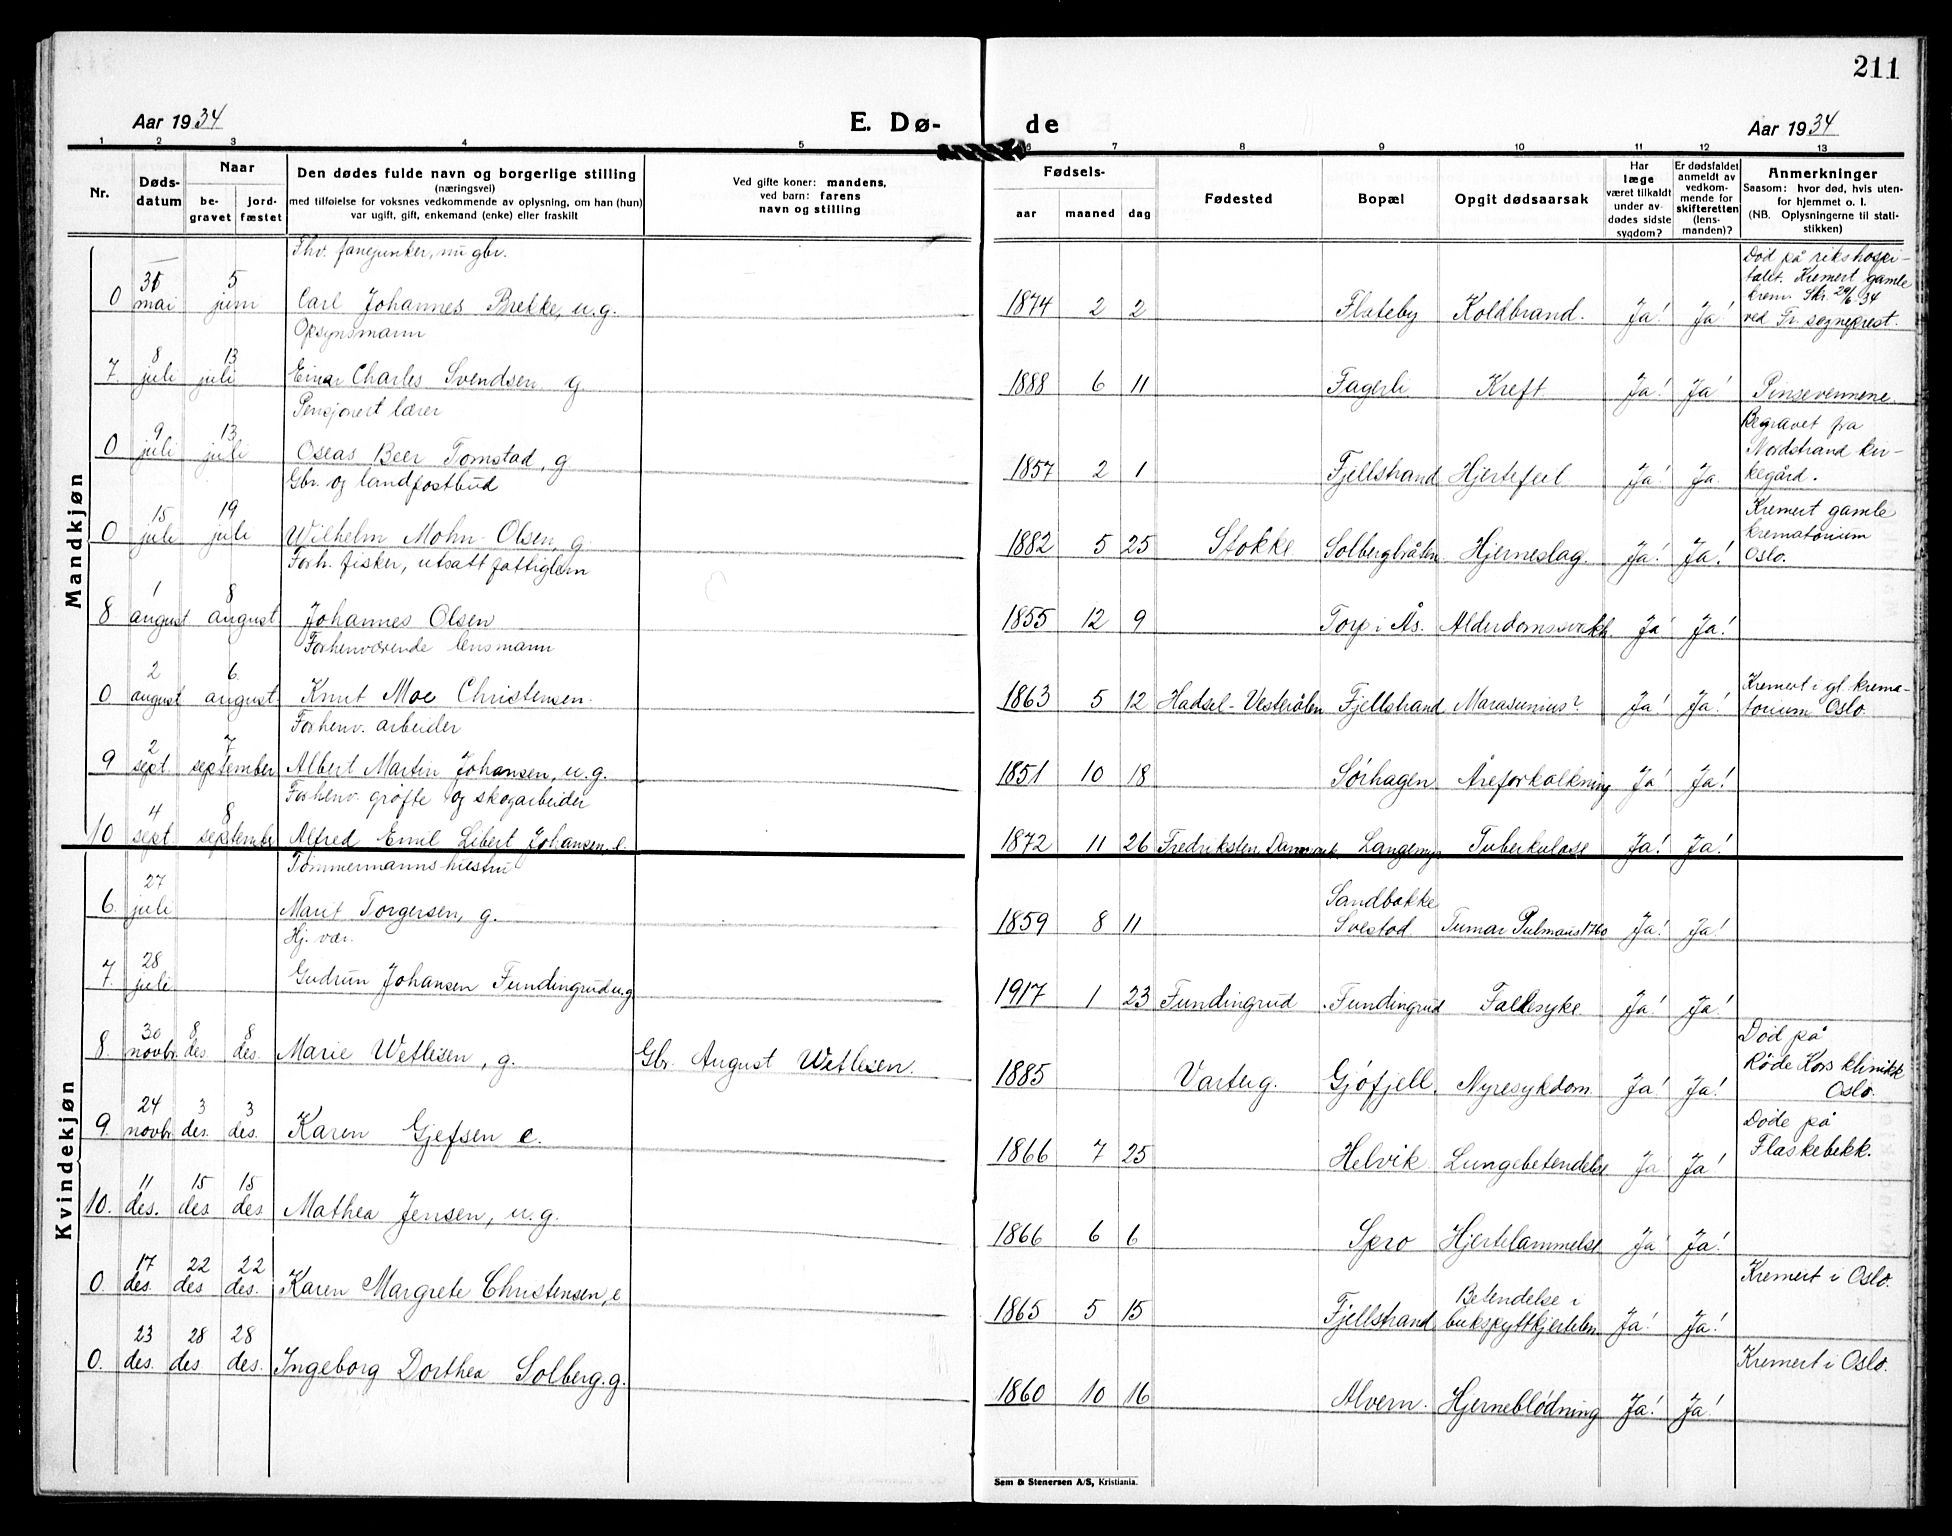 211
Aar 1934
E. Dø-
de
Aar 1934
1 2 3 4 5 6 7 8 9 10 11 12 13
Nr.
Døds-
datum
Naar
be-
gravet
jord-
fæstet
Den dødes fulde navn og borgerlige stilling
(næringsvei)
med tilføielse for voksnes vedkommende av oplysning, om han (hun)
var ugift, gift, enkemand (enke) eller fraskilt
Ved gifte koner: mandens,
ved barn: farens
navn og stilling
Fødsels-
aar maaned dag
Fødested
Bopæl
Opgit dødsaarsak
Har
læge
været tilkaldt
under av-
dødes sidste
sygdom?
Er dødsfaldet
anmeldt av
vedkom-
mende for
skifteretten
(lens-
manden)?
Anmerkninger
Saasom: hvor død, hvis uten-
for hjemmet o. l.
(NB. Oplysningerne til stati-
stikken)
Mandkjøn
Fhv. fanejunker, nu gbr.
0 31 mai 5 juni Carl Johannes Brekke, u.g. 1874 2 2 Flateby Koldbrand. Ja! Ja!
Død på rikshospi-
talet. Kremert gamle
krem. Skr. 29/6 34
ved Tr. sogneprest.
Opsynsmann
7. 8 juli 13 juli Einar Charles Svendsen g 1888 6 11 Fagerli Kreft Ja! Ja! Pinsevennene
Pensjonert lærer
0 9 juli 13 juli Oseas Beer Tomstad, g 1857 2 1 Fjellstrand Hjertefeil Ja! Ja.
Begravet fra
Nordstrand kir-
kegård.
Gbr. og landpostbud
0 15 juli 19 juli Wilhelm Mohn Olsen, g. 1882 5 25 Stokke Solbergbråten Hjerneslag Ja! Ja!
Kremert gamle
krematorium
Oslo.
Forh. fisker, utsatt fattiglem
8 1 august 8 august Johannes Olsen 1855 12 9 Torp i Ås. Alderdomssvakh. Ja! Ja!
Forhenværende lensmann
0 2 august 6. august Knut Moe Christensen. 1863 5 12 Hadsel-Vesterålen Fjellstrand Marasmus? Ja! Ja!
Kremert i gl. krema-
torium Oslo.
Forhenv. arbeider
9 2 sept 7 september Albert Martin Johansen, u.g. 1851 10 18 Sørhagen Åreforkalkning Ja! Ja!
Forhenv. grøfte og skogarbeider
10 4 sept. 8 september Alfred Emil Libert Johansen, e. 1872 11 26 Fredriksten Danmark. Langemyr Tuberkulose Ja! Ja!
Kvindekjøn
Tømmermanns hustru
6. 27 juli Marit Torgersen, g. 1859 8 11 Sandbakke
Svestad Tumor Pulmonis Ja! Ja!
Hj. vær.
7. 28 juli Gudrun Johansen Fundingrud u.g 1917 1 23 Fundingrud Fundingrud Fallesyke Ja! Ja!
8. 30 novbr. 8 des. 8 des. Marie Wetlesen, g. Gbr. August Wetlesen. 1885 Varteig. Gjøfjell. Nyresykdom Ja! Ja!
Død på
Røde Kors klinikk
Oslo.
9. 24 novbr. 3 des. 3 des. Karen Gjefsen e. 1866 7 25 Helvik Lungebetendelse Ja! Ja!
Døde på
Flaskebekk.
10. 11 des. 15 des 15 des Mathea Jensen, u.g. 1866 6 6 Spro Hjertelammelse Ja! Ja!
0. 17 des. 22 des 22 des. Karen Margrete Christensen, e 1865 5 15 Fjellstrand Betendelse i
bukspyttkjertelen Ja! Ja! Kremert i Oslo.
0. 23 des. 28 des 28 des. Ingeborg Dorthea Solberg. g. 1860 10 16 Alvern. Hjerneblødning Ja! Ja! Kremert i Oslo.
Sem & Stenersen A/S, Kristiania.